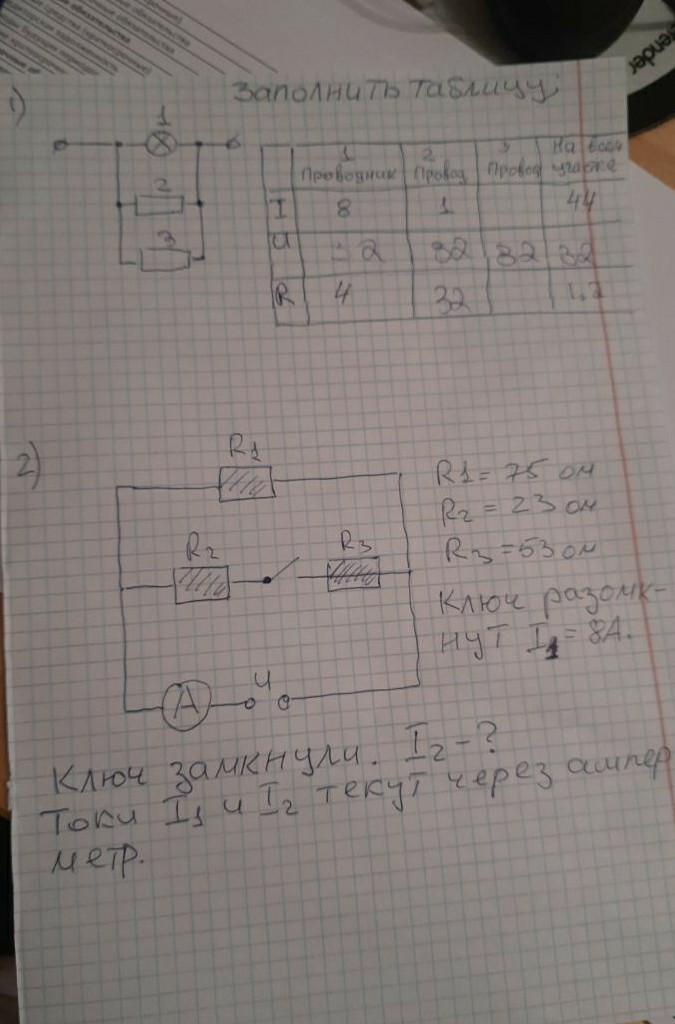 Заполнить таблицу:
1)
1
2
3
1 Проводник 2 Провод 3 Провод На всём участке
I 8 1 44
U 32 32 32
R 4 32
2)
R1
R2 R3
A U
R1 = 75 ом
R2 = 23 ом
R3 = 53 ом
Ключ разомк-
нут I1 = 8А.
Ключ замкнули. I2 - ?
Токи I1 и I2 текут через ампер
метр.